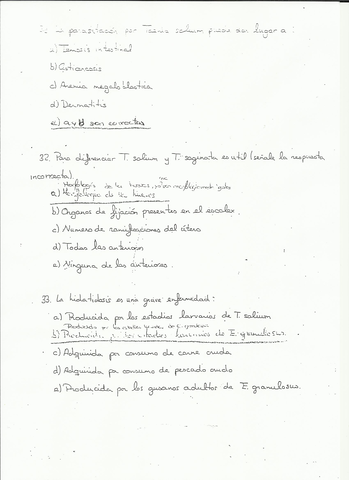 La parasitación por Taenia solium puede dar lugar a :
a) Teniasis intestinal
b) Cisticercosis
c) Anemia megaloblastica
d) Dermatitis
e) a y b son correctas
32. Para diferenciar T. solium y T. saginata es util (señale la respuesta
incorrecta).
Morfología de los huevos, son morfológicamente iguales
a) Morfología de los huevos
b) Organos de fijación presentes en el escolex.
c) Numero de ramificaciones del útero
d) Todas las anteriores
e) Ninguna de las anteriores.
33. La hidatidosis es una grave enfermedad :
a) Producida por los estadios larvarios de T. solium
Producida por los estadios larvarios de E. granulosus
b) Producida por los estadios larvarios de E. granulosus.
c) Adquirida por consumo de carne cruda
d) Adquirida por consumo de pescado crudo
e) Producida por los gusanos adultos de E. granulosus.